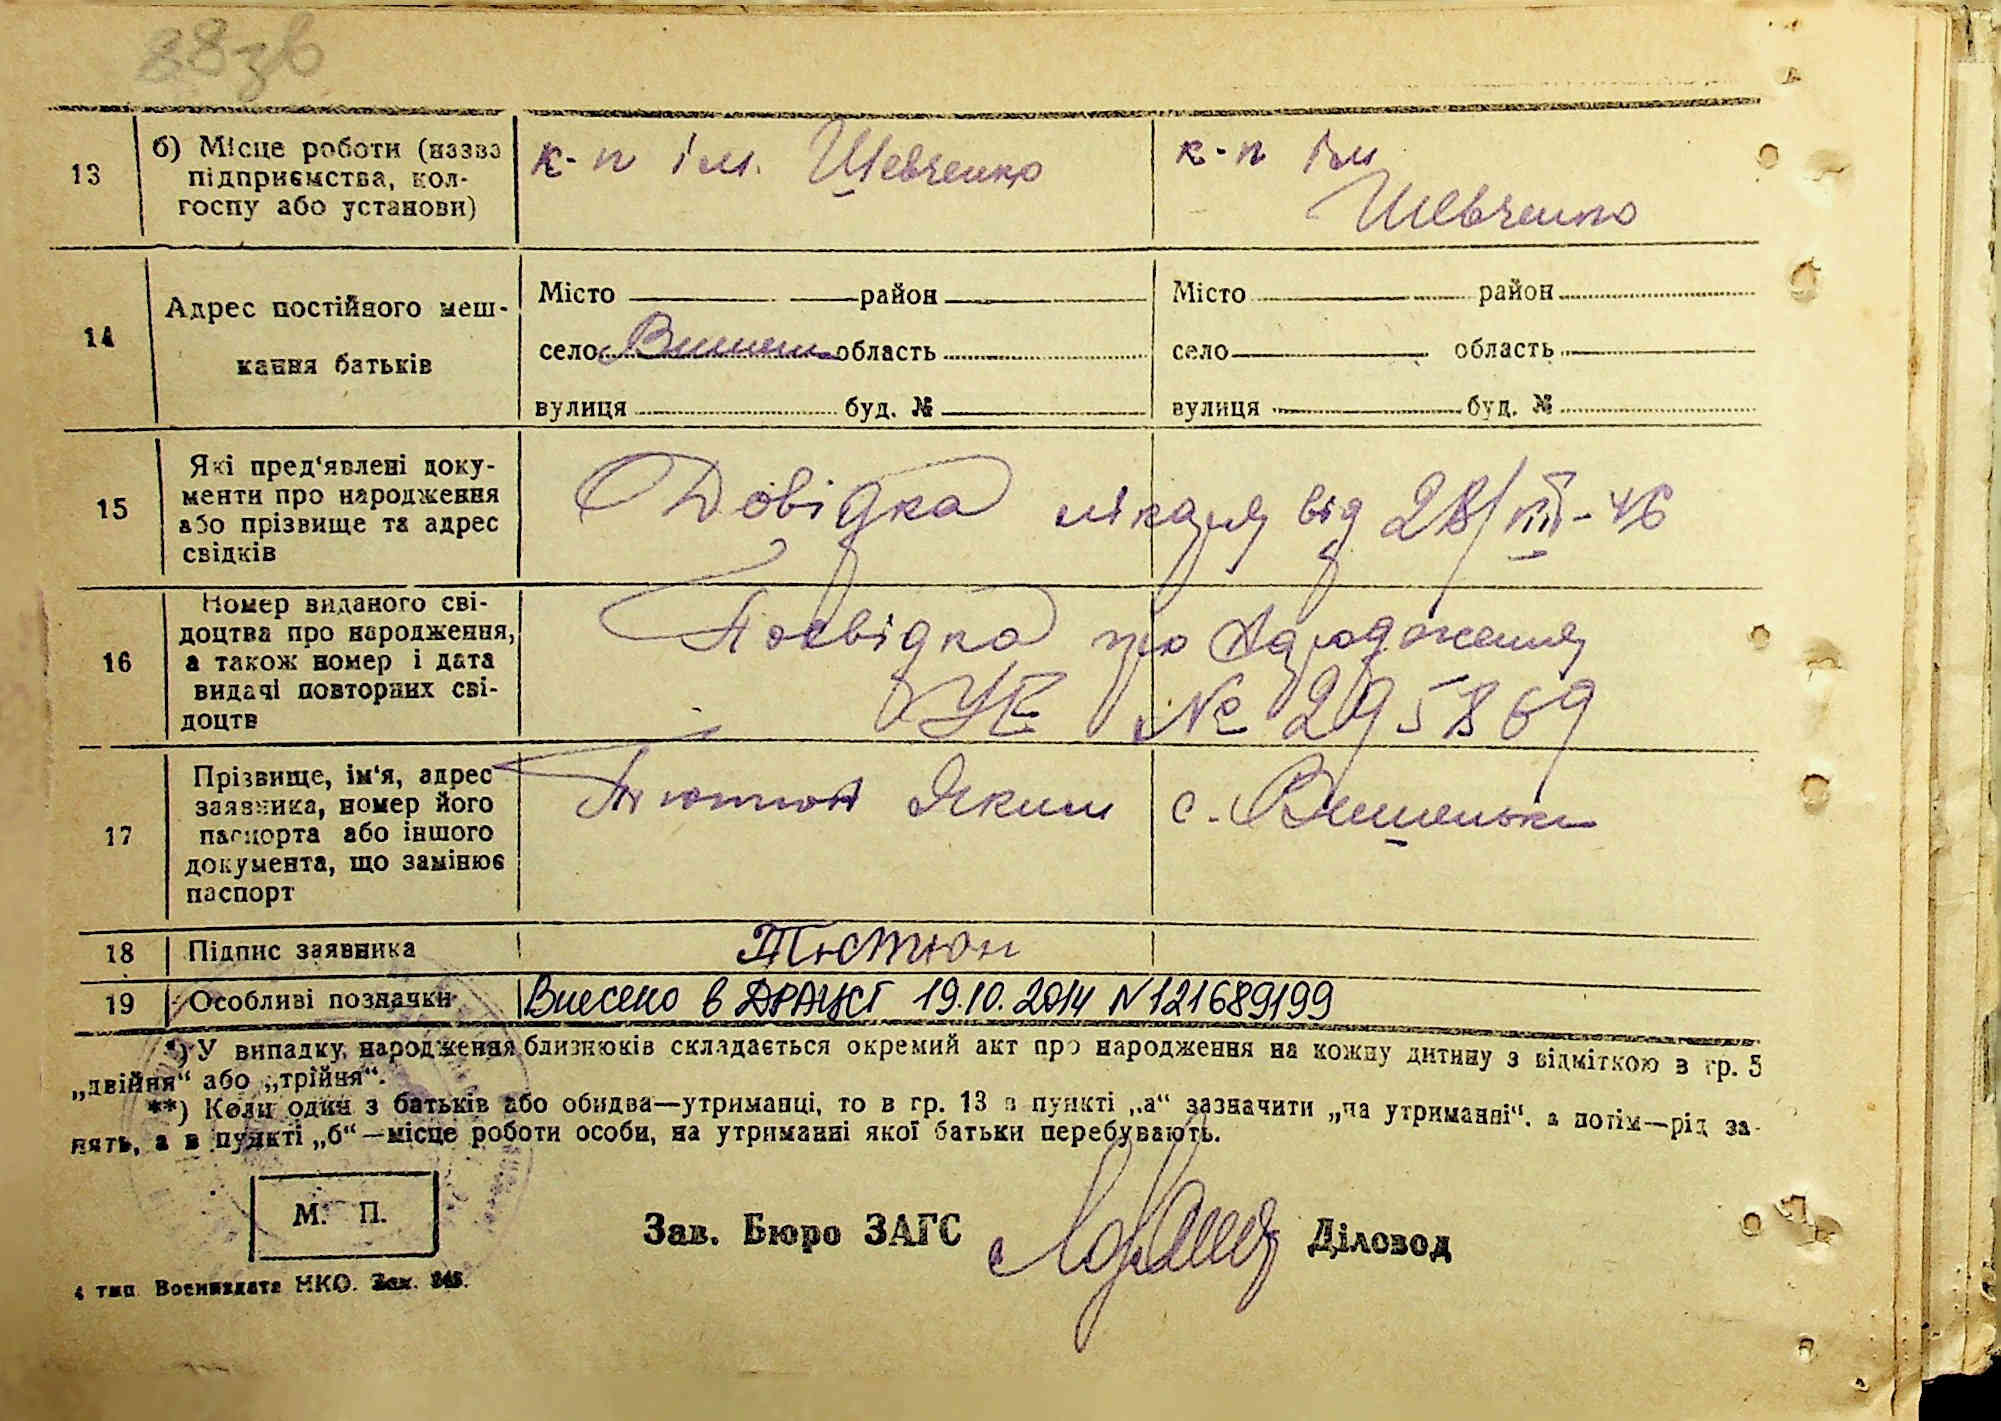 88зв
13 б) Місце роботи (назва підприємства, колгоспу або установи) к-п ім. Шевченко к-п ім Шевченко
14 Адрес постійного меш-
кання батьків
Місто район Місто район
село Вишеньк область село область
вулиця буд. № вулиця буд. №
15 Які пред'явлені доку-
менти про народження
або прізвище та адрес
свідків
Довідка лікаря від 28/XII-46
16 Номер виданого сві-
доцтва про народження,
а також номер і дата
видачі повторних сві-
доцтв
Посвідка про народження
УБ № 295869
17 Прізвище, ім'я, адрес
заявника, номер його
паспорта або іншого
документа, що замінює
паспорт
Тютюн Яким с. Вишеньки
18 Підпис заявника Тютюн
19 Особливі позначки Внесено в ДРАЦСГ 19.10.2014 N 121689199
*) У випадку народження близнюків складається окремий акт про народження на кожну дитину з відміткою в гр. 5
„двійня“ або „трійня“.
**) Коли один з батьків або обидва—утриманці, то в гр. 13 в пункті „а“ зазначити „на утриманні“, а потім—рід за-
нять, а в пункті „б“—місце роботи особи, на утриманні якої батьки перебувають.
М. П.
Зав. Бюро ЗАГС Діловод
4 тип. Воениздата НКО. Зак.